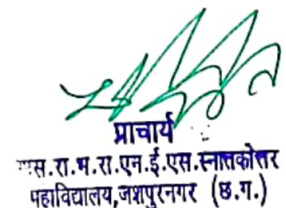 प्राचार्य
स.रा.भ.रा.एन.ई.एस.स्नातकोत्तर
महाविद्यालय,जशपुरनगर (छ.ग.)